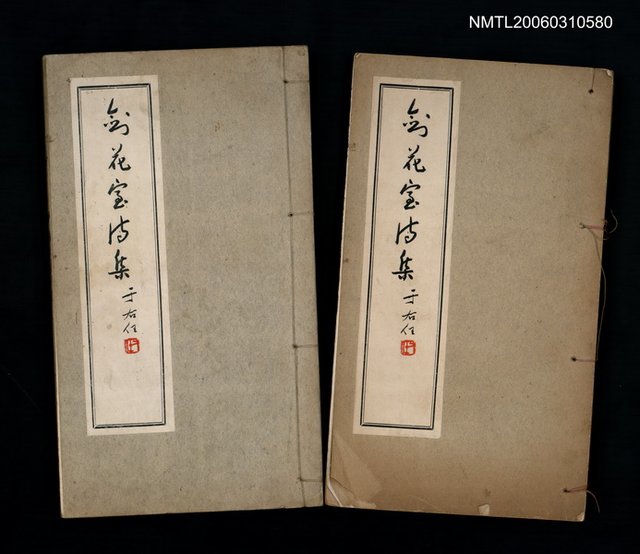 NMTL20060310580
劍花室詩集
于右任
劍花室詩集
于右任